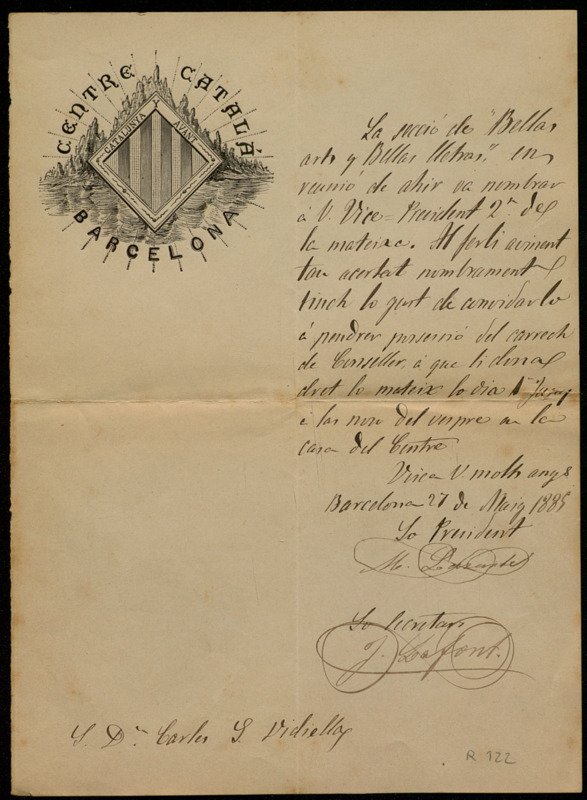 CENTRE CATALÁ
CATALUNYA AVANT
BARCELONA
La secció de "Bellas
arts y Bellas lletras," en
reunió de ahir va nombrar
á V. Vice-President 2ⁿ de
la mateixa. Al ferli avinent
tan acertat nombrament
tinch lo gust de convidarlo
á pendrer possessió del carrech
de Conseller, á que li dona
dret lo mateix lo dia 1ʳ
á las nou del vespre en la
casa del Centre
Visca V. molts anys
Barcelona 27 de Maig 1885
Lo President
Lo Secretari
J. Lafont.
S. Dⁿ Carles G. Vidiella
R 122